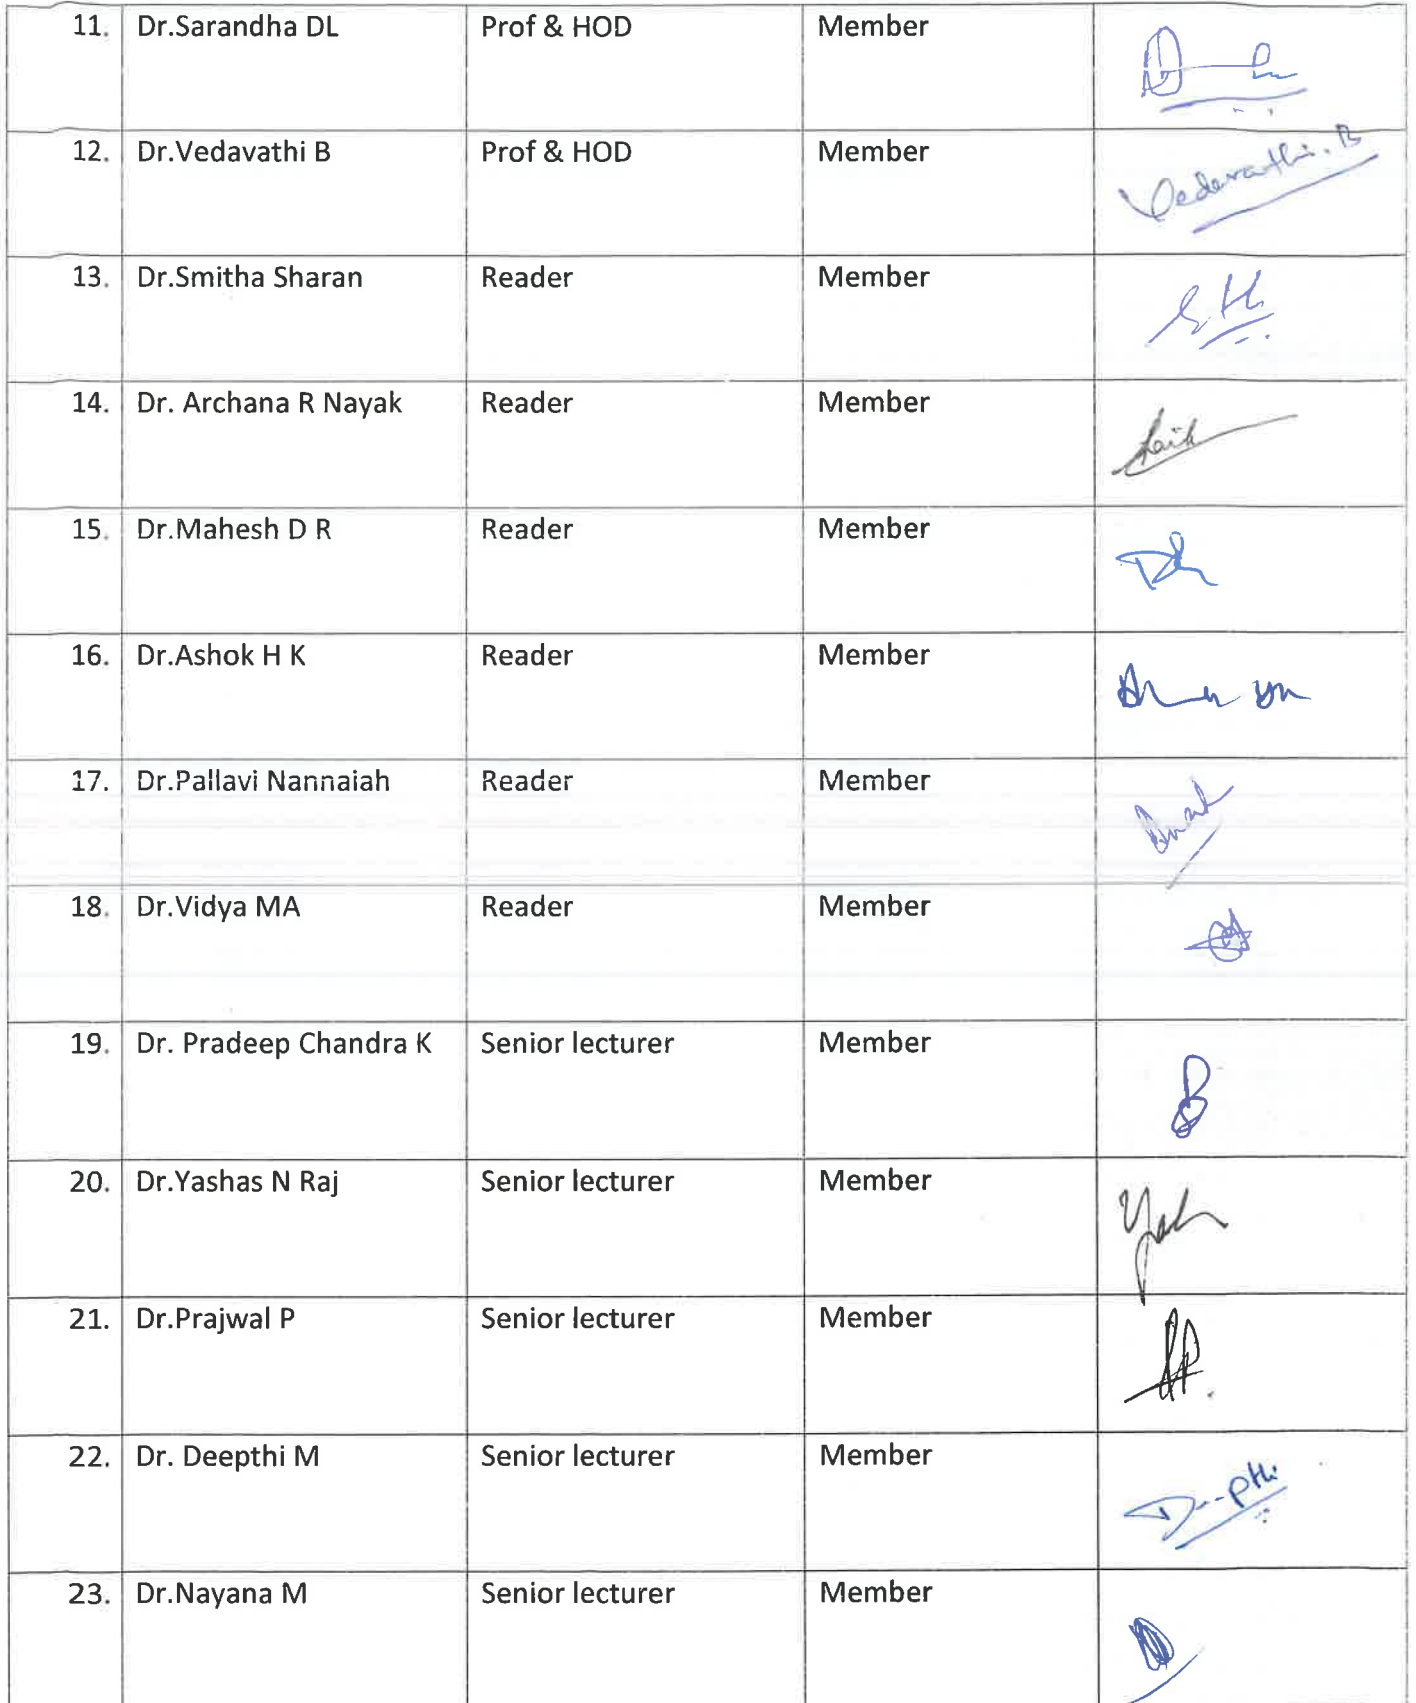 11. Dr.Sarandha DL Prof & HOD Member
12. Dr.Vedavathi B Prof & HOD Member Vedavathi. B
13. Dr.Smitha Sharan Reader Member
14. Dr. Archana R Nayak Reader Member
15. Dr.Mahesh D R Reader Member
16. Dr.Ashok H K Reader Member
17. Dr.Pallavi Nannaiah Reader Member
18. Dr.Vidya MA Reader Member
19. Dr. Pradeep Chandra K Senior lecturer Member
20. Dr.Yashas N Raj Senior lecturer Member
21. Dr.Prajwal P Senior lecturer Member
22. Dr. Deepthi M Senior lecturer Member
23. Dr.Nayana M Senior lecturer Member